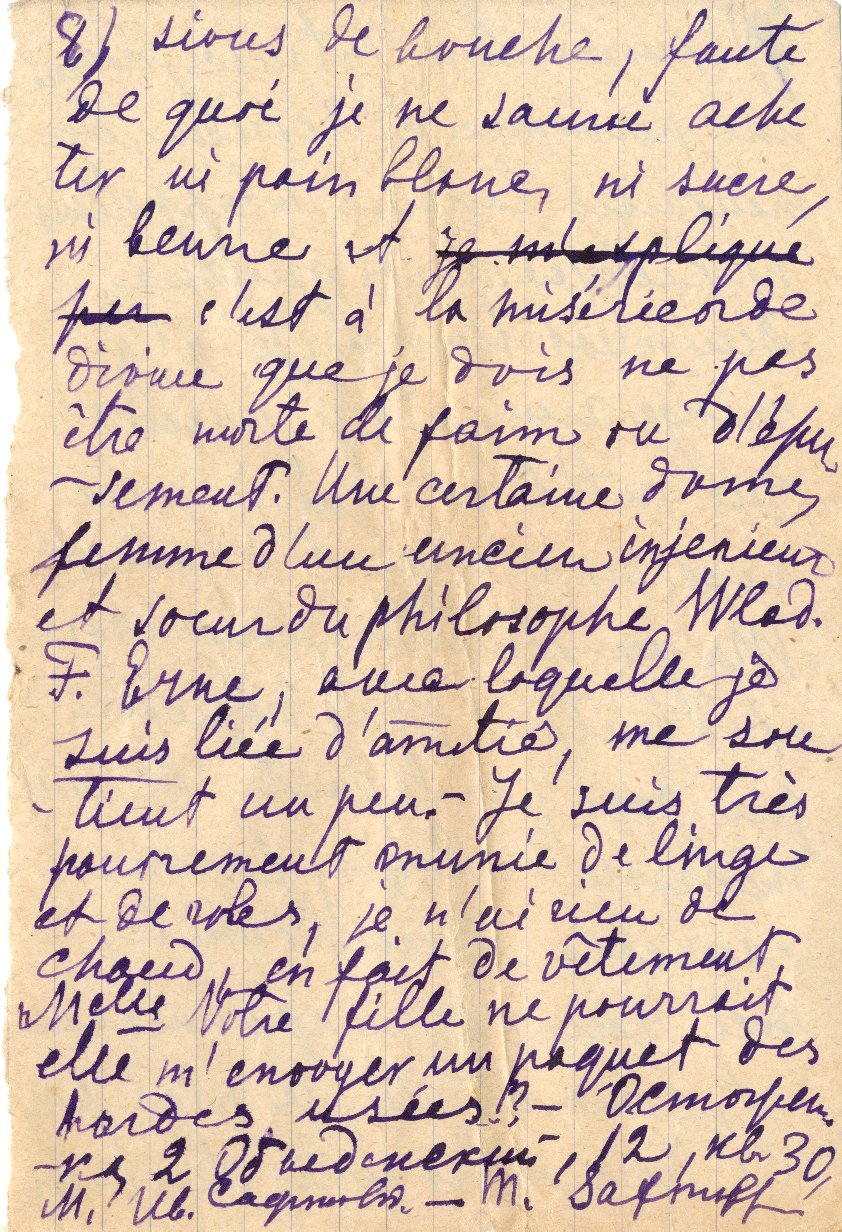 8) sions de bouche, faute
de quoi je ne saurai ache
ter ni pain blanc, ni sucre,
ni beurre et je m'explique
peu c'est à la miséricorde
divine que je dois ne pas
être morte de faim ou d'épui
-sement. Une certaine dame,
femme d'un ancien injenieur
et soeur du philosophe Wlad.
F. Erne, avec laquelle je
suis liée d'amitié, me sou
-tient un peu. - Je suis très
pauvrement munie de linge
et de robes, je n'ai rien de
chaud, en fait de vêtement,
Melle Votre fille ne pourrait
elle m'envoyer un paquet des
hardes usées!? - Остожен
-ка, 2 Обыденский, 12, кв. 30,
М. Ив. - M.